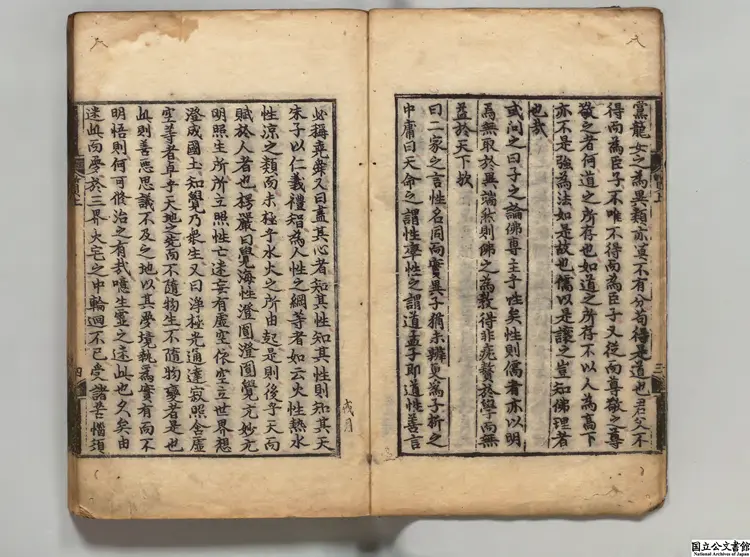 黨龍女之為異類亦莫不有分苟得是道也君父不
得而為臣子不唯不得而為臣子又從而尊敬之尊
敬之者何道之所存也如道之所存不以人為高下
亦不是強為法如是故也儒以是讓之豈知佛理者
也哉
或問之曰子之論佛尊主乎性矣性則儒者亦以明
為無取於異端然則佛之為教得非疣贅於學而無
益於天下歟
曰二家之言性名同而實異子猶未辨更為子析之
中庸曰天命之謂性率性之謂道孟子即道性善言
三
必稱堯舜又曰盡其心者知其性知其性則知其天
朱子以仁義禮智為人性之綱等者如云火性熱水
性涼之類而未極乎水火之所由起是則後乎天而
賦於人者也楞嚴曰覺海性澄圓圓澄覺元妙元
明照生所所立照性亡迷妄有虛空依空立世界想
澄成國土知覺乃衆生又曰淨極光通達寂照含虛
空等者卓乎天地之先而不隨物生不隨物變者是也
此則善惡思議不及之地以其夢境執為實有而不
明悟則何可修治之有哉噫生靈之迷此也久矣由
迷此而夢於三界大宅之中輪迴不已受諸苦惱須
四
国立公文書館
National Archives of Japan